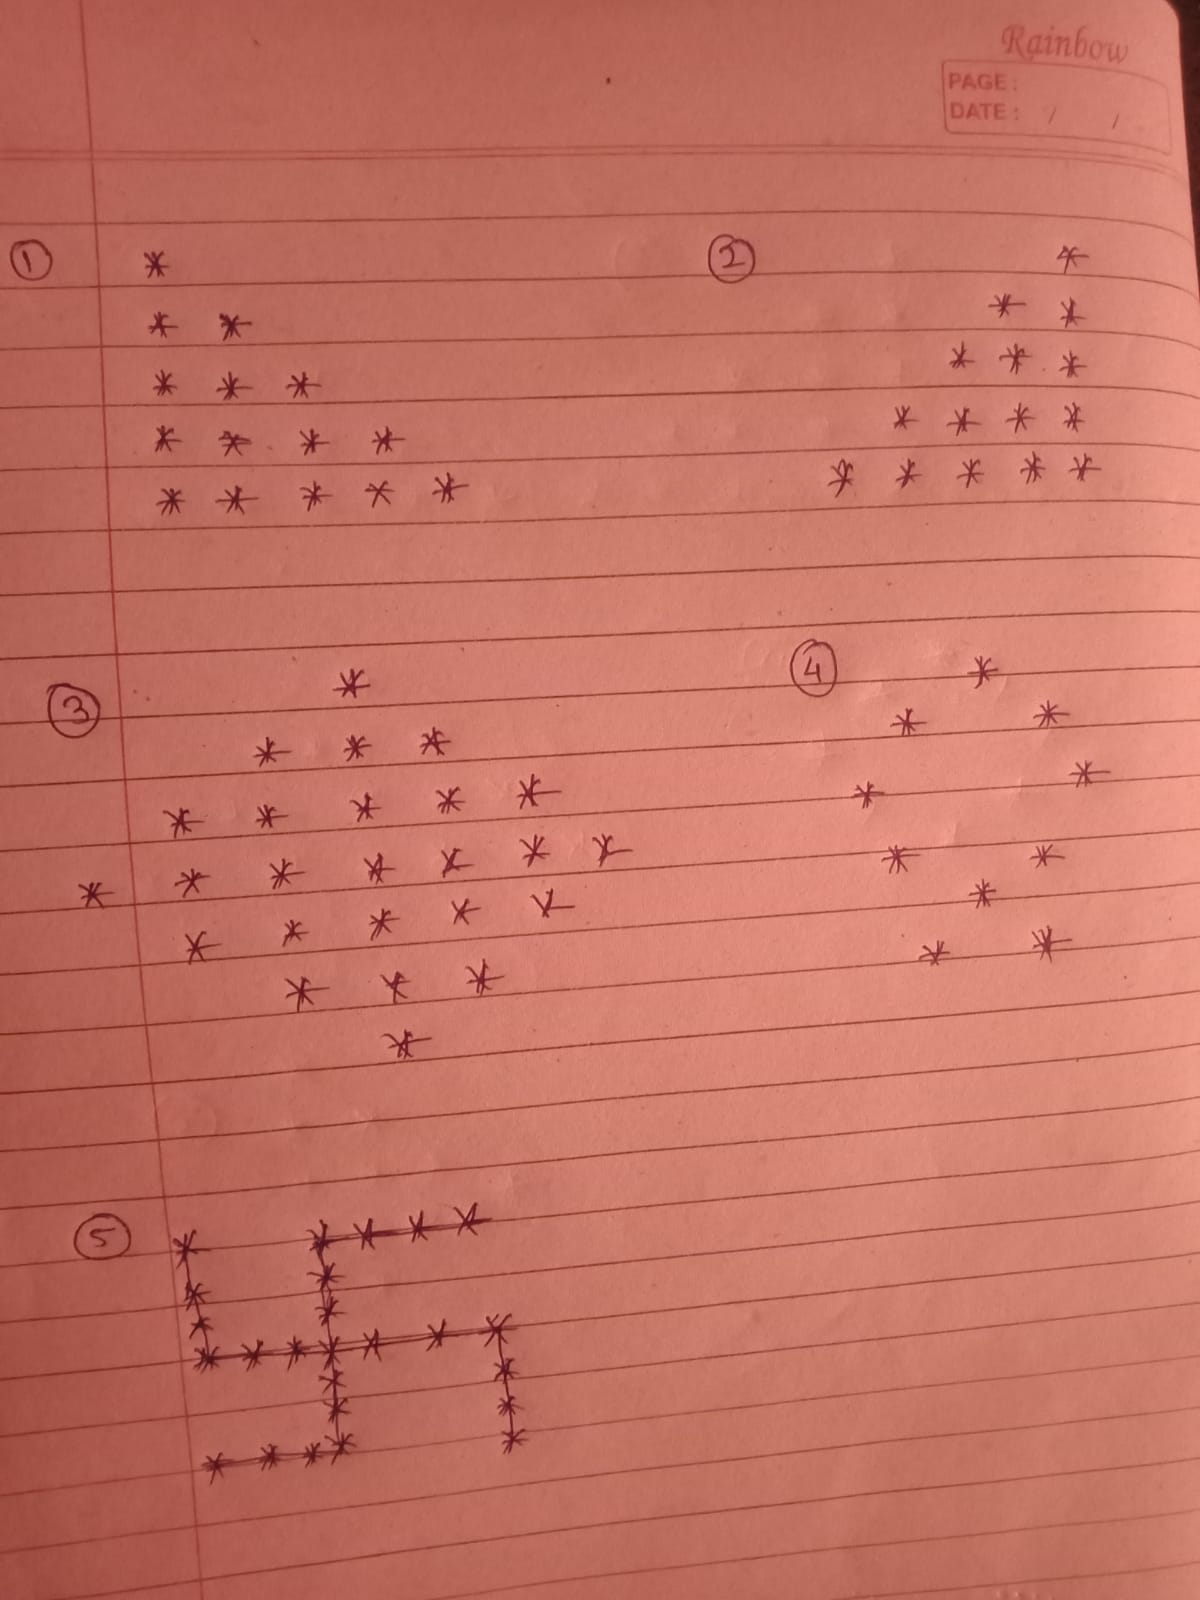 Rainbow
PAGE:
DATE: / /
① *
* *
* * *
* * * *
* * * * *
② *
* *
* * *
* * * *
* * * * *
③ *
* * *
* * * * *
* * * * * * *
* * * * *
* * *
*
④ *
* *
* *
* *
*
* *
⑤ * * * * *
* *
* *
* * * * * * *
* *
* *
* * * * *